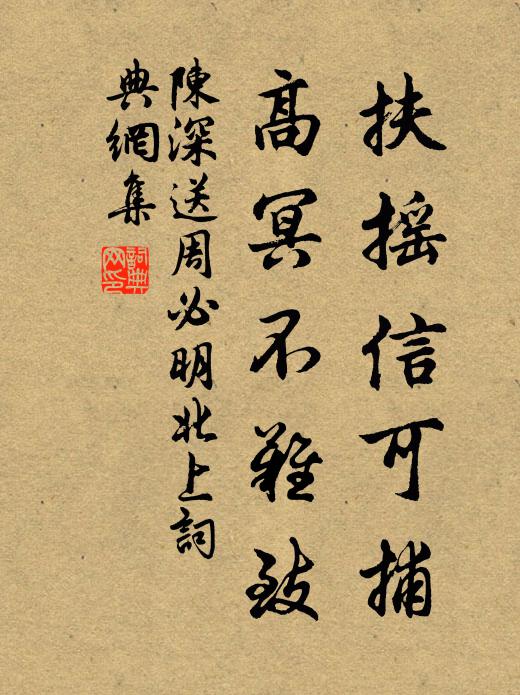 扶摇信可捕
高冥不難致
陳深送周必明北上詞
典網集
詞典網印